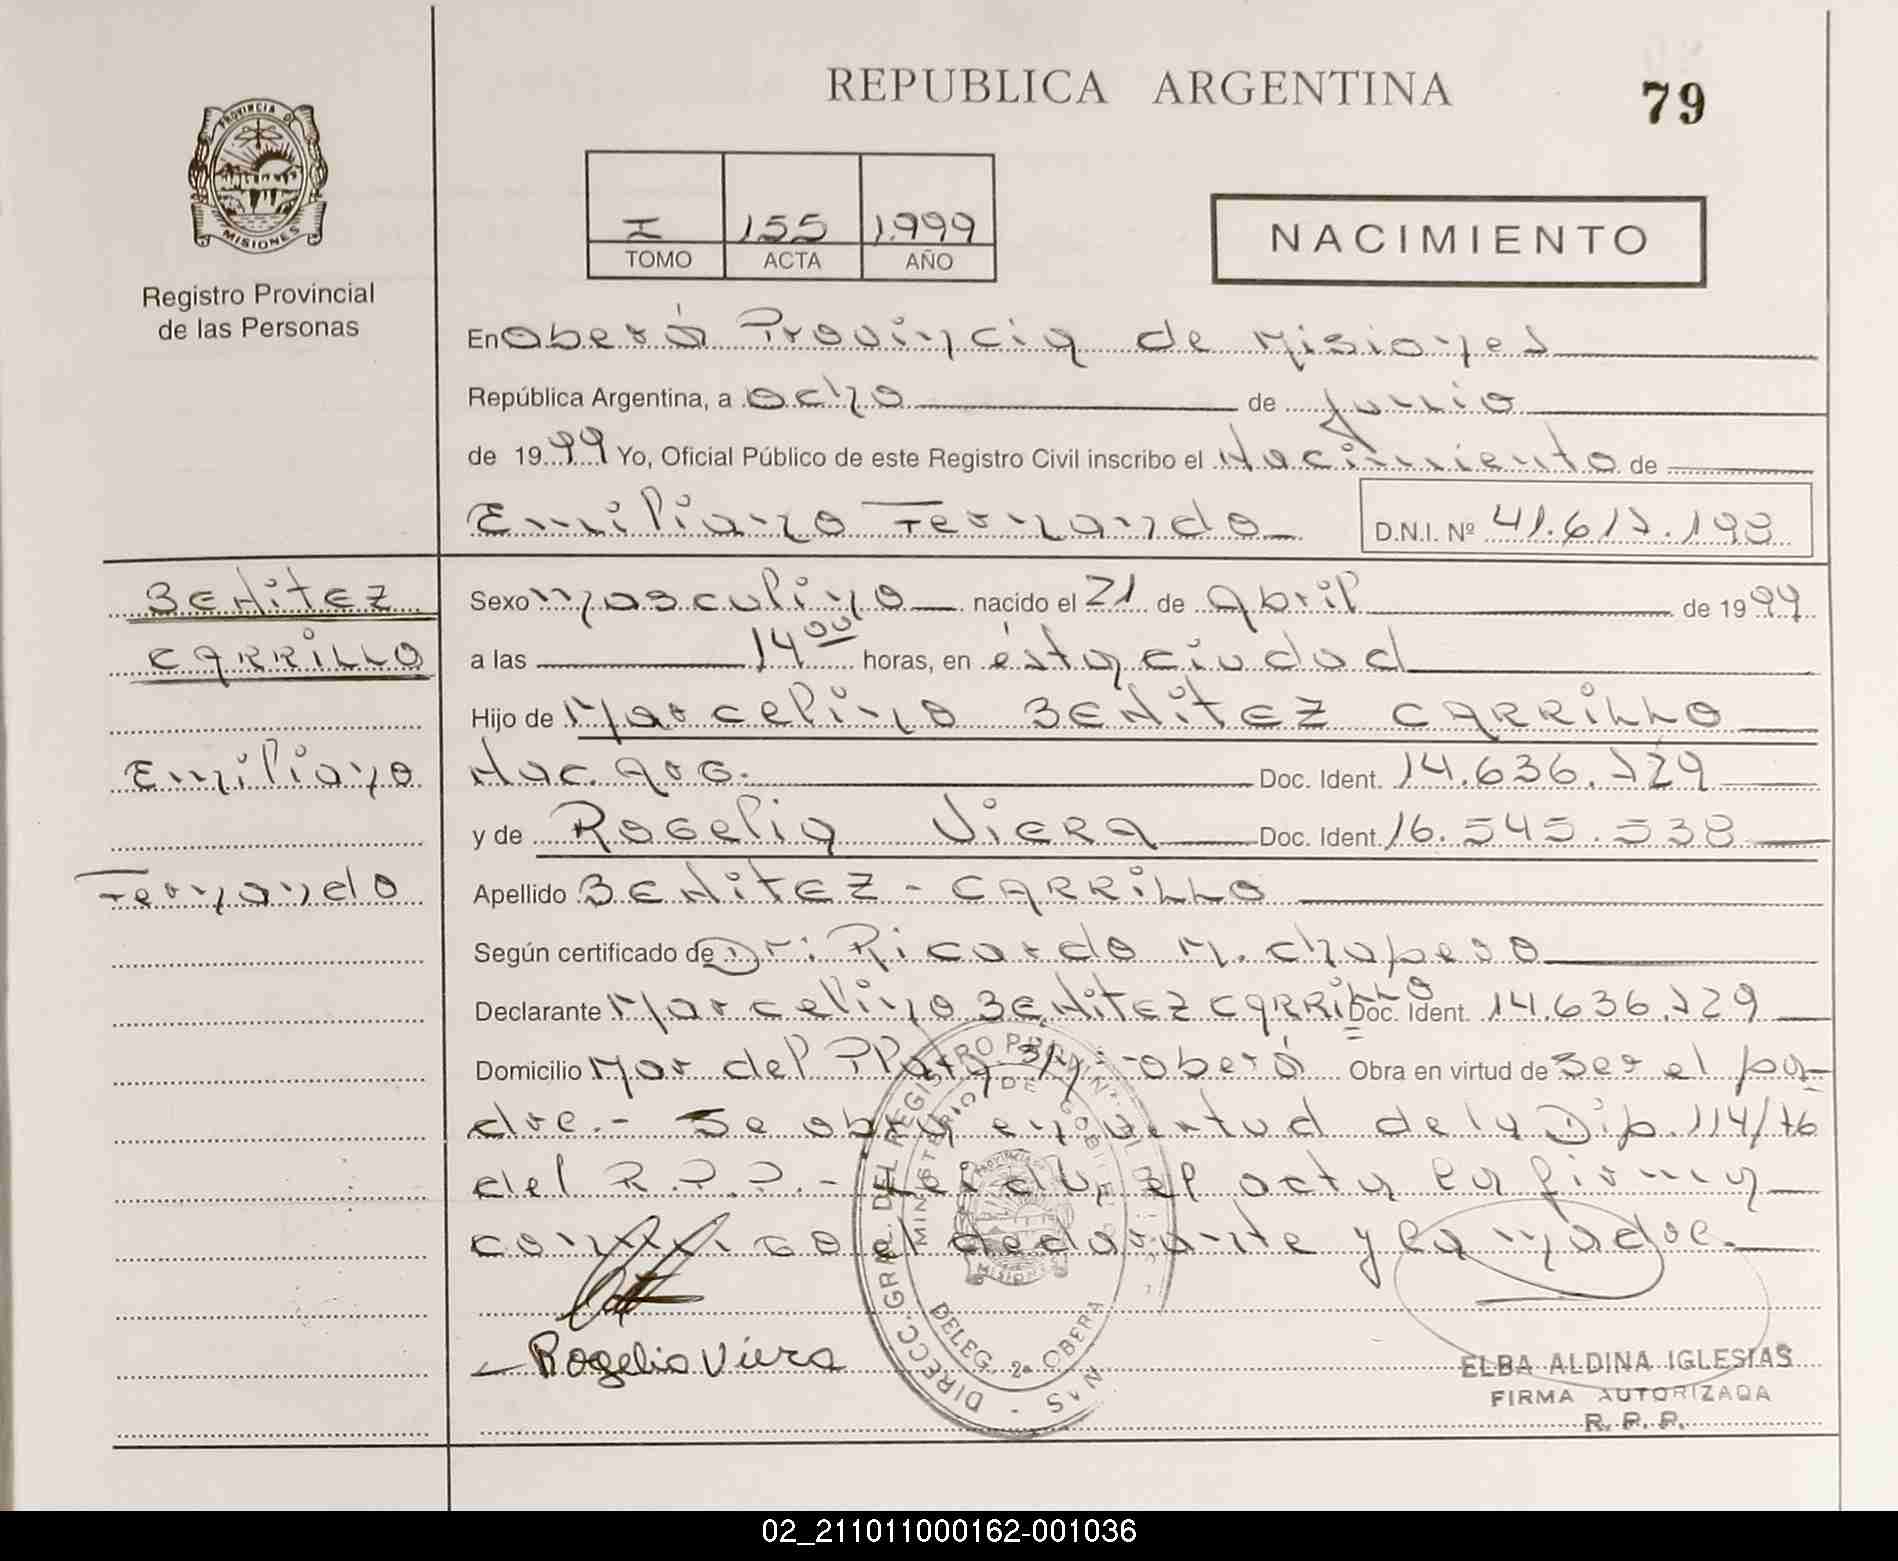 REPUBLICA ARGENTINA
79
PROVINCIA DE
MISIONES
Registro Provincial
de las Personas
I 155 1.999
TOMO ACTA AÑO
NACIMIENTO
En Oberá Provincia de Misiones
República Argentina, a ocho de junio
de 1999 Yo, Oficial Público de este Registro Civil inscribo el Nacimiento de
Emiliano Fernando D.N.I. Nº 41.617.198
BENITEZ
CARRILLO
Emiliano
Fernando
Sexo masculino nacido el 21 de abril de 1999
a las 14 00 horas, en ésta ciudad
Hijo de Marcelino BENITEZ CARRILLO
Nac. Arg. Doc. Ident. 14.636.729
y de Rogelia VIERA Doc. Ident. 16.545.538
Apellido BENITEZ - CARRILLO
Según certificado de Dr: Ricardo M.
Declarante Marcelino BENITEZ CARRILLO Doc. Ident. 14.636.729
Domicilio Mar del Plata S/N: -Oberá Obra en virtud de ser el pa-
dre.- Se obra en virtud de la Dip. 114/76
del R.P.P.- Leída el acta la firma
conmigo el declarante y la madre.-
Rogelia Viera
DIRECC. GRAL. DEL REGISTRO PROVIN
MINISTERIO DE GOBIE
PROVINCIA DE
MISIONES
DELEG. 2a OBERA
ELBA ALDINA IGLESIAS
FIRMA AUTORIZADA
R. P. P.
02_211011000162-001036